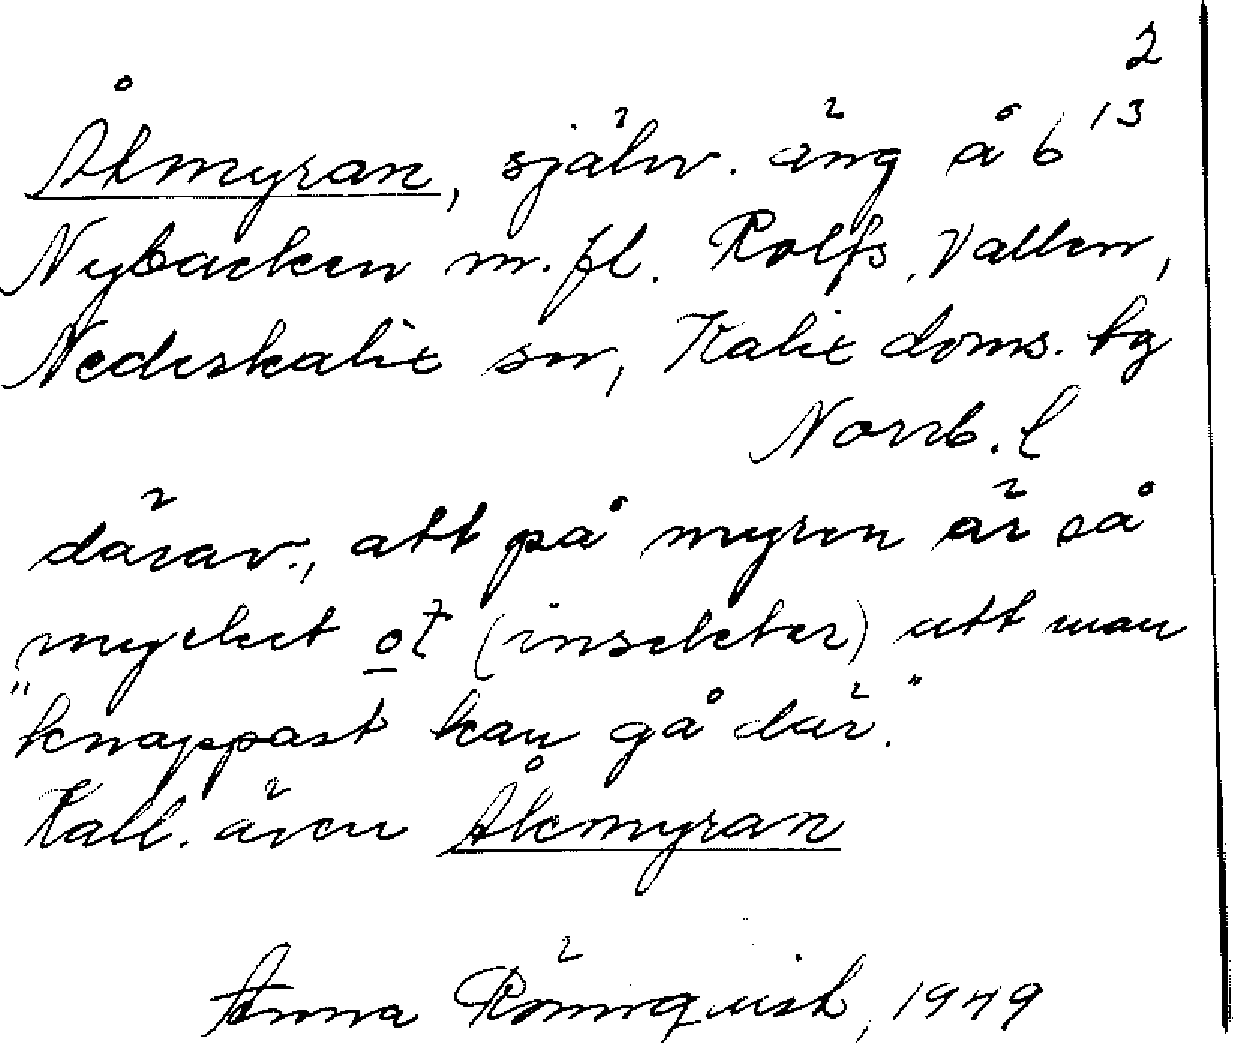 2
Ålmyran, själv. äng å 6 13
Nybacken m.fl. Rolfs, Vallen,
Nederkalix sn, Kalix doms. tg
Norrb. l
därav, att på myren är så
mycket ot (insekter) att man
"knappast kan gå där."
Kall. även Åkmyran
Anna Rönnquist, 1949